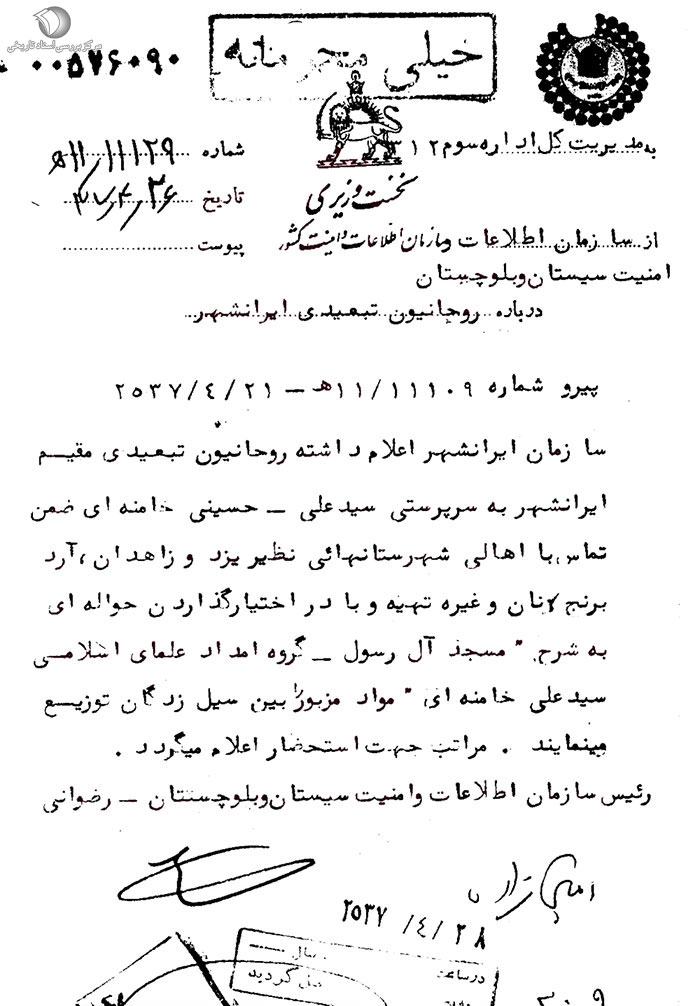 مرکز بررسی اسناد تاریخی
۰۰۵۷۶۰۹۰
خیلی محرمانه
به مدیریت کل اداره سوم ۳۱۲
شماره ۱۱/۱۱۱۲۹ هـ
تاریخ ۳۷/۴/۲۶
نخست وزیری
سازمان اطلاعات و امنیت کشور
از سازمان اطلاعات و
پیوست
امنیت سیستان وبلوچستان
درباره روحانیون تبعیدی ایرانشهر
پیرو شماره ۱۱/۱۱۱۰۹هـ – ۲۵۳۷/٤/۲۱
سازمان ایرانشهر اعلام داشته روحانیون تبعیدی مقیم
ایرانشهر به سرپرستی سیدعلی – حسینی خامنه ای ضمن
تماس با اهالی شهرستانهائی نظیر یزد و زاهدان، آرد
برنج نان و غیره تهیه و با در اختیارگذاردن حواله ای
به شرح " مسجد آل رسول – گروه امداد علمای اسلامی
سیدعلی خامنه ای " مواد مزبور را بین سیل زدگان توزیع
مینمایند . مراتب جهت استحضار اعلام میگردد .
رئیس سازمان اطلاعات وامنیت سیستان وبلوچستان – رضوانی
۲۵۳۷/٤/۲۸
درساعت
سال
گردید